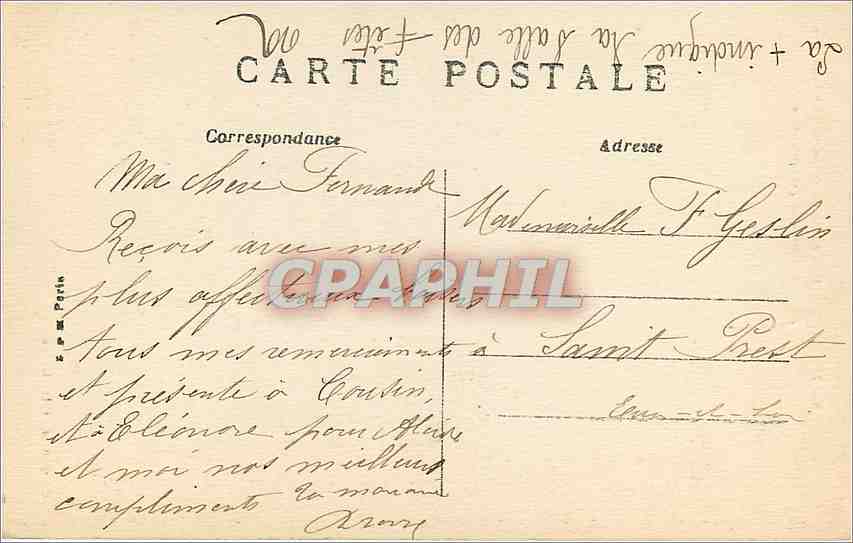 La + indique la Salle des Fêtes
CARTE POSTALE
Correspondance
Adresse
Ma chère Fernande
Reçois avec mes
plus affectueux baisers
tous mes remerciements
et présente à Cousin,
et à Eléonore pour
et moi nos meilleurs
compliments Ta marraine
Mademoiselle F Geslin
à Saint Prest
Eure-et-Loir
Paris
CPAPHIL